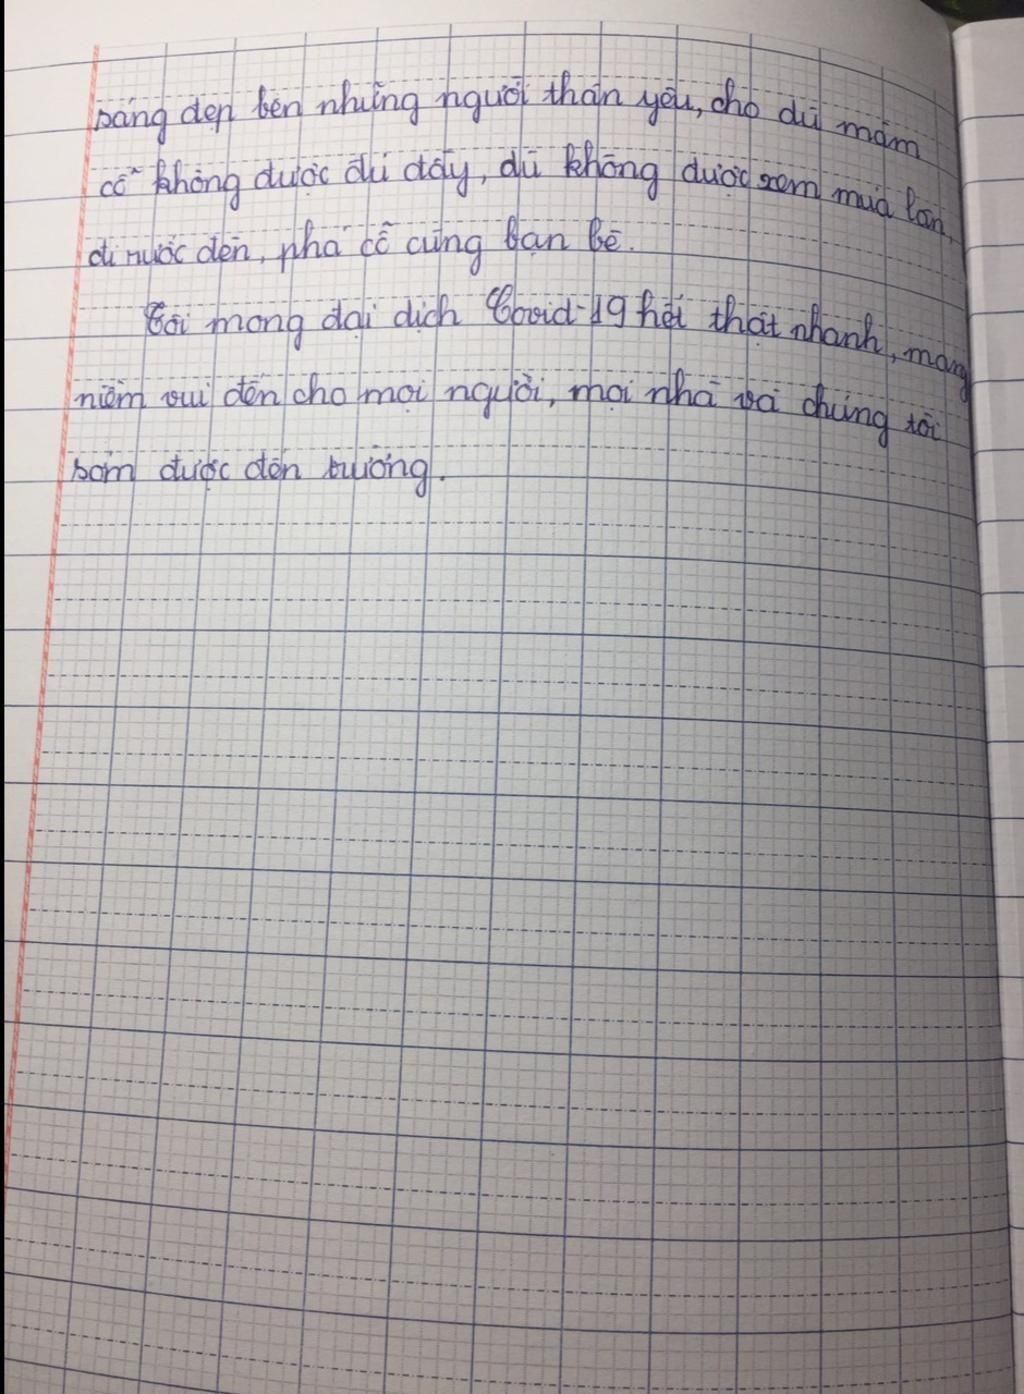 sáng đẹp bên những người thân yêu, cho dù mâm
cỗ không được đủ đầy, dù không được xem múa lân,
đi rước đèn, phá cỗ cùng bạn bè.
Tôi mong đại dịch Covid-19 hết thật nhanh, mang
niềm vui đến cho mọi người, mọi nhà và chúng tôi
sớm được đến trường.